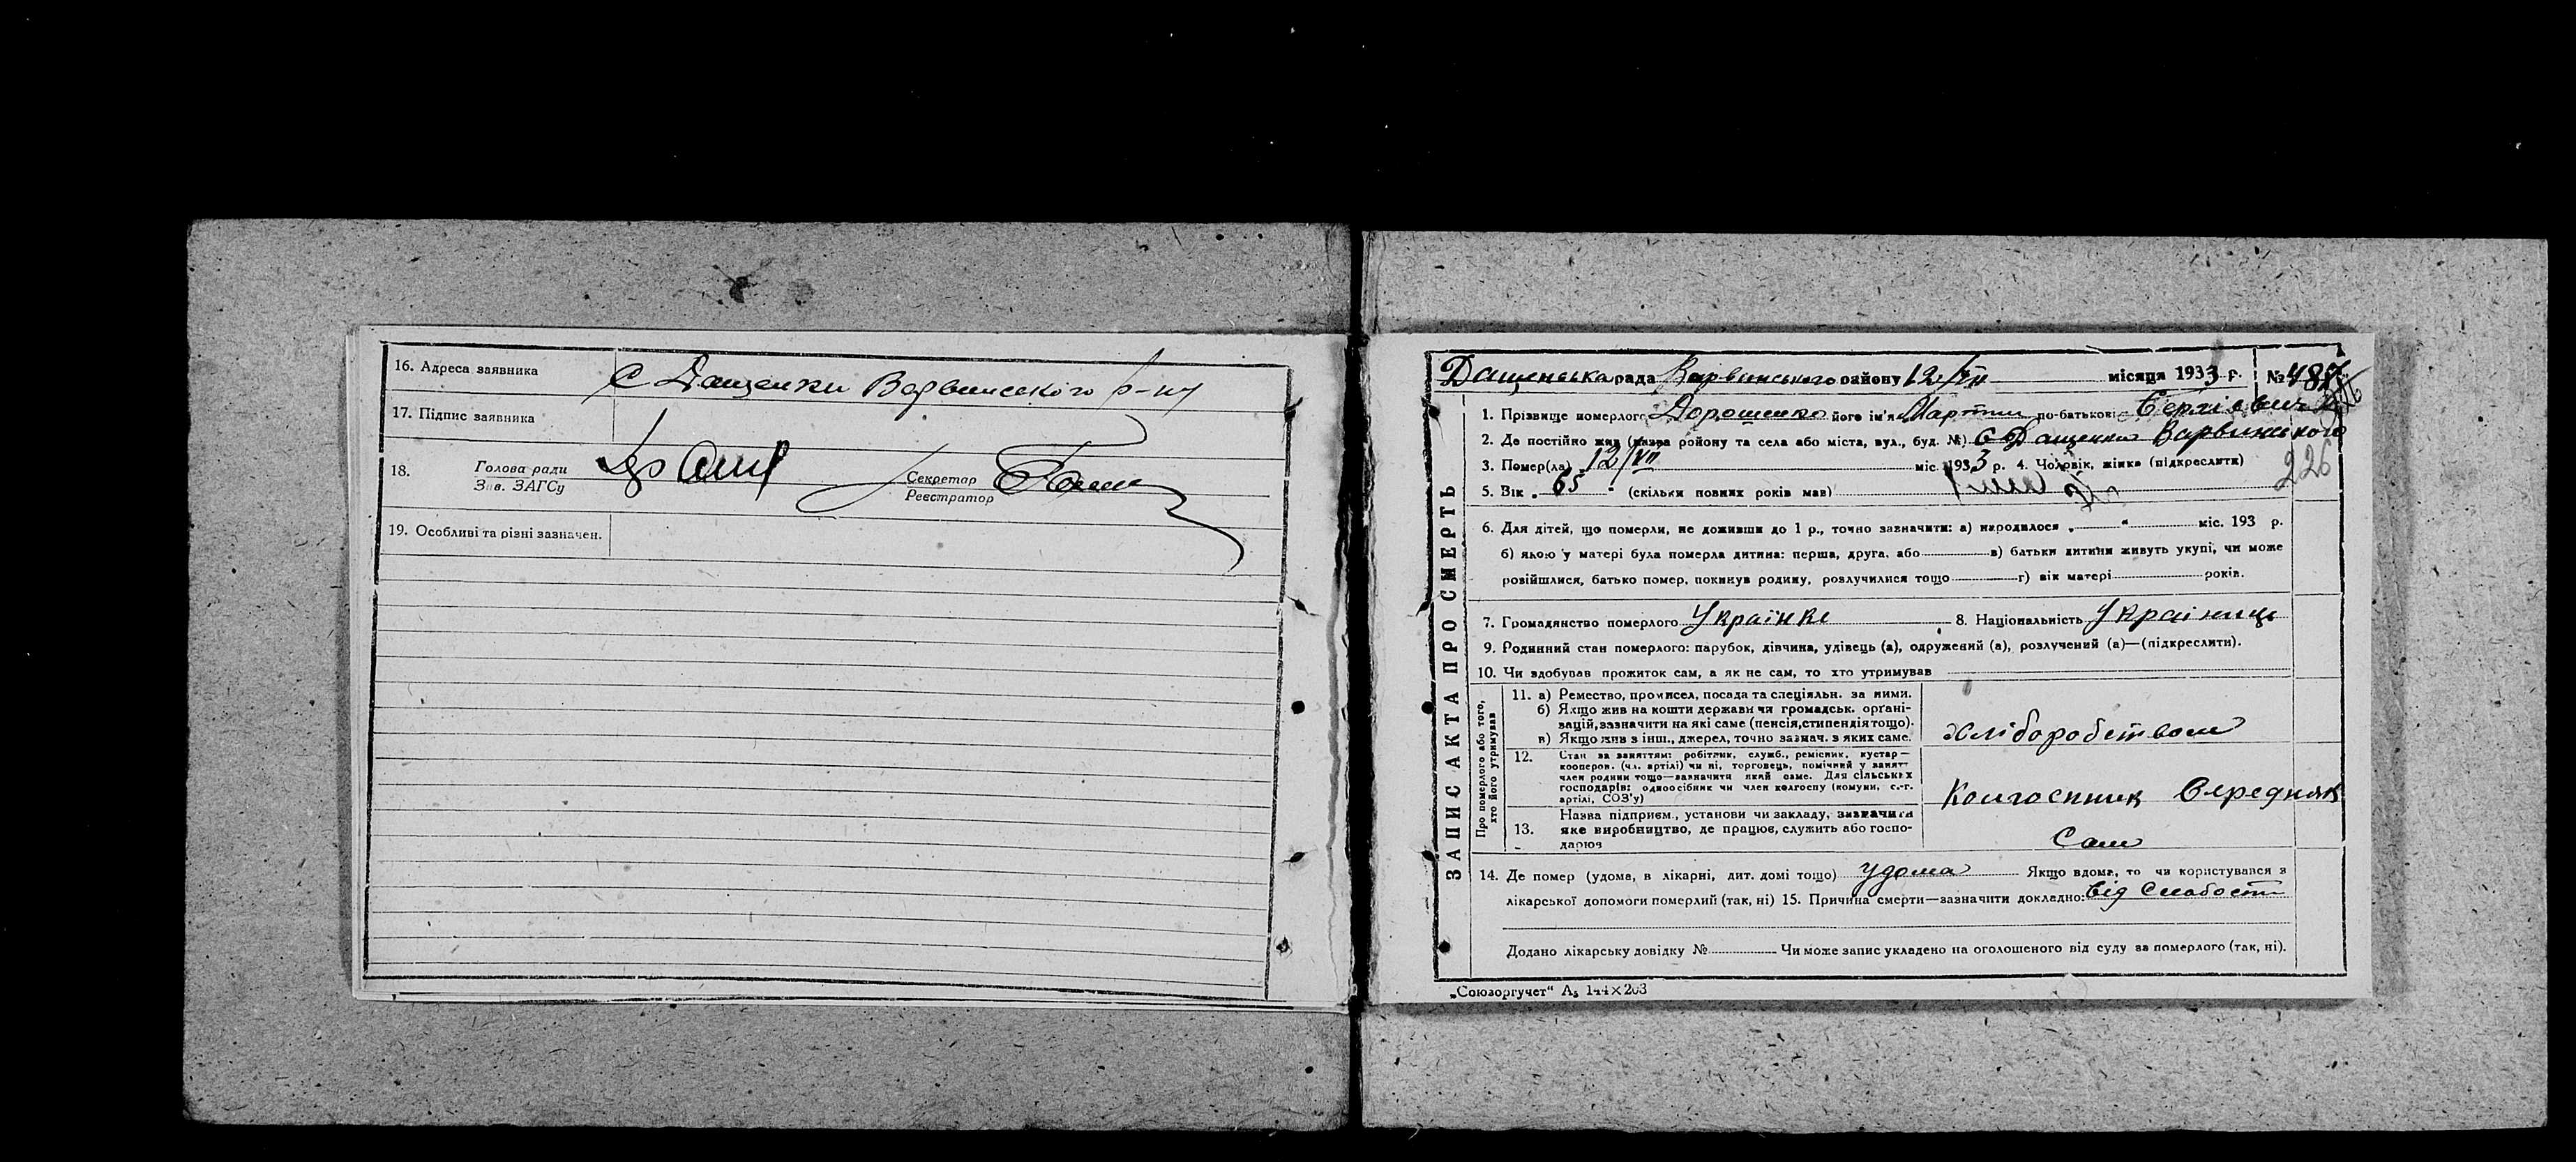 16. Адреса заявника С Дащенки Варвинського р-ну
17. Підпис заявника
18. Голова ради Секретар
Зав. ЗАГСу Реєстратор
19. Особливі та різні зазначен.
ЗАПИС АКТА ПРО СМЕРТЬ
Дащенська рада Варвинського району 12/VII місяця 1933 р. №
1. Прізвище померлого Дорошенко його ім'я Мартин по-батькові
2. Де постійно жив (назва району та села або міста, вул., буд. №) С Дащенки Варвинського
3. Помер(ла) 12/VII міс. 1933 р. 4. Чоловік, жінка (підкреслити)
226
5. Вік „ 65 " (скільки повних років мав)
6. Для дітей, що померли, не доживши до 1 р., точно зазначити: а) народилося „ " міс. 193 р.
б) якою у матері була померла дитина: перша, друга, або в) батьки дитини живуть укупі, чи може
розійшлися, батько помер, покинув родину, розлучилися тощо г) вік матері років.
7. Громадянство померлого 8. Національність Українець
9. Родинний стан померлого: парубок, дівчина, удівець (а), одружений (а), розлучений (а)—(підкреслити).
10. Чи здобував прожиток сам, а як не сам, то хто утримував
Про померлого або того,
хто його утримував
11. а) Ремество, промисел, посада та спеціяльн. за ними.
б) Якщо жив на кошти держави чи громадськ. орґані-
зацій, зазначити на які саме (пенсія, стипендія тощо).
в) Якщо жив з інш., джерел, точно зазнач. з яких саме.
хліборобством
12. Стан за заняттям: робітник, служб., ремісник, кустар—
кооперов. (чл. артілі) чи ні, торговець, помічний у занятт
член родини тощо—зазначити який саме. Для сільських
господарів: одноосібник чи член колгоспу (комуни, с.-г.
артілі, СОЗ'у)
Колгоспник Середняк
13. Назва підприєм., установи чи закладу, зазначити
яке виробництво, де працює, служить або госпо-
дарює
Сам
14. Де помер (удома, в лікарні, дит. домі тощо) удома Якщо вдома, то чи користувався з
лікарської допомоги померлий (так, ні) 15. Причина смерти—зазначити докладно: від слабости
Додано лікарську довідку № Чи може запис укладено на оголошеного від суду за померлого (так, ні).
„Союзоргучет" А5 144×203